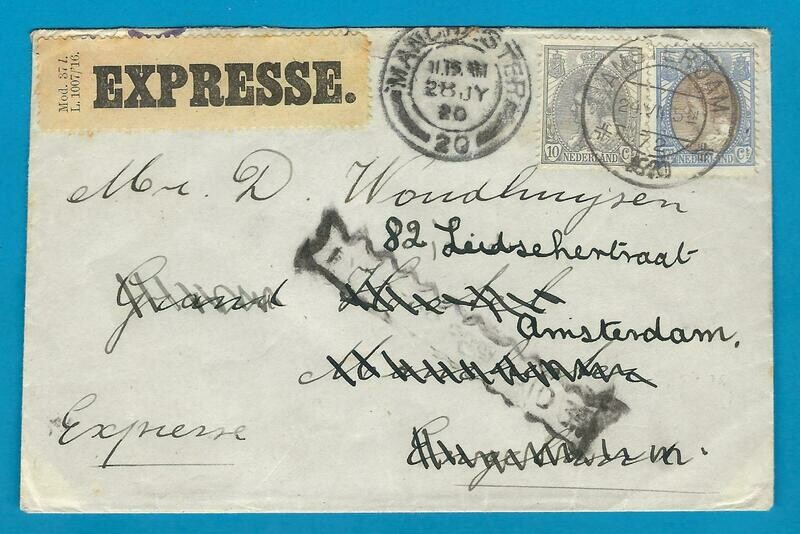 Mod. 377.
L. 1007/'16.
EXPRESSE.
MANCHESTER
11.15 AM
28 JY
20
20
AMSTERDAM
10 NEDERLAND Ct
NEDERLAND Ct
Mr. D. Woudhuysen
82 Leidschertraat
Grand
Amsterdam.
Manchester
Expresse